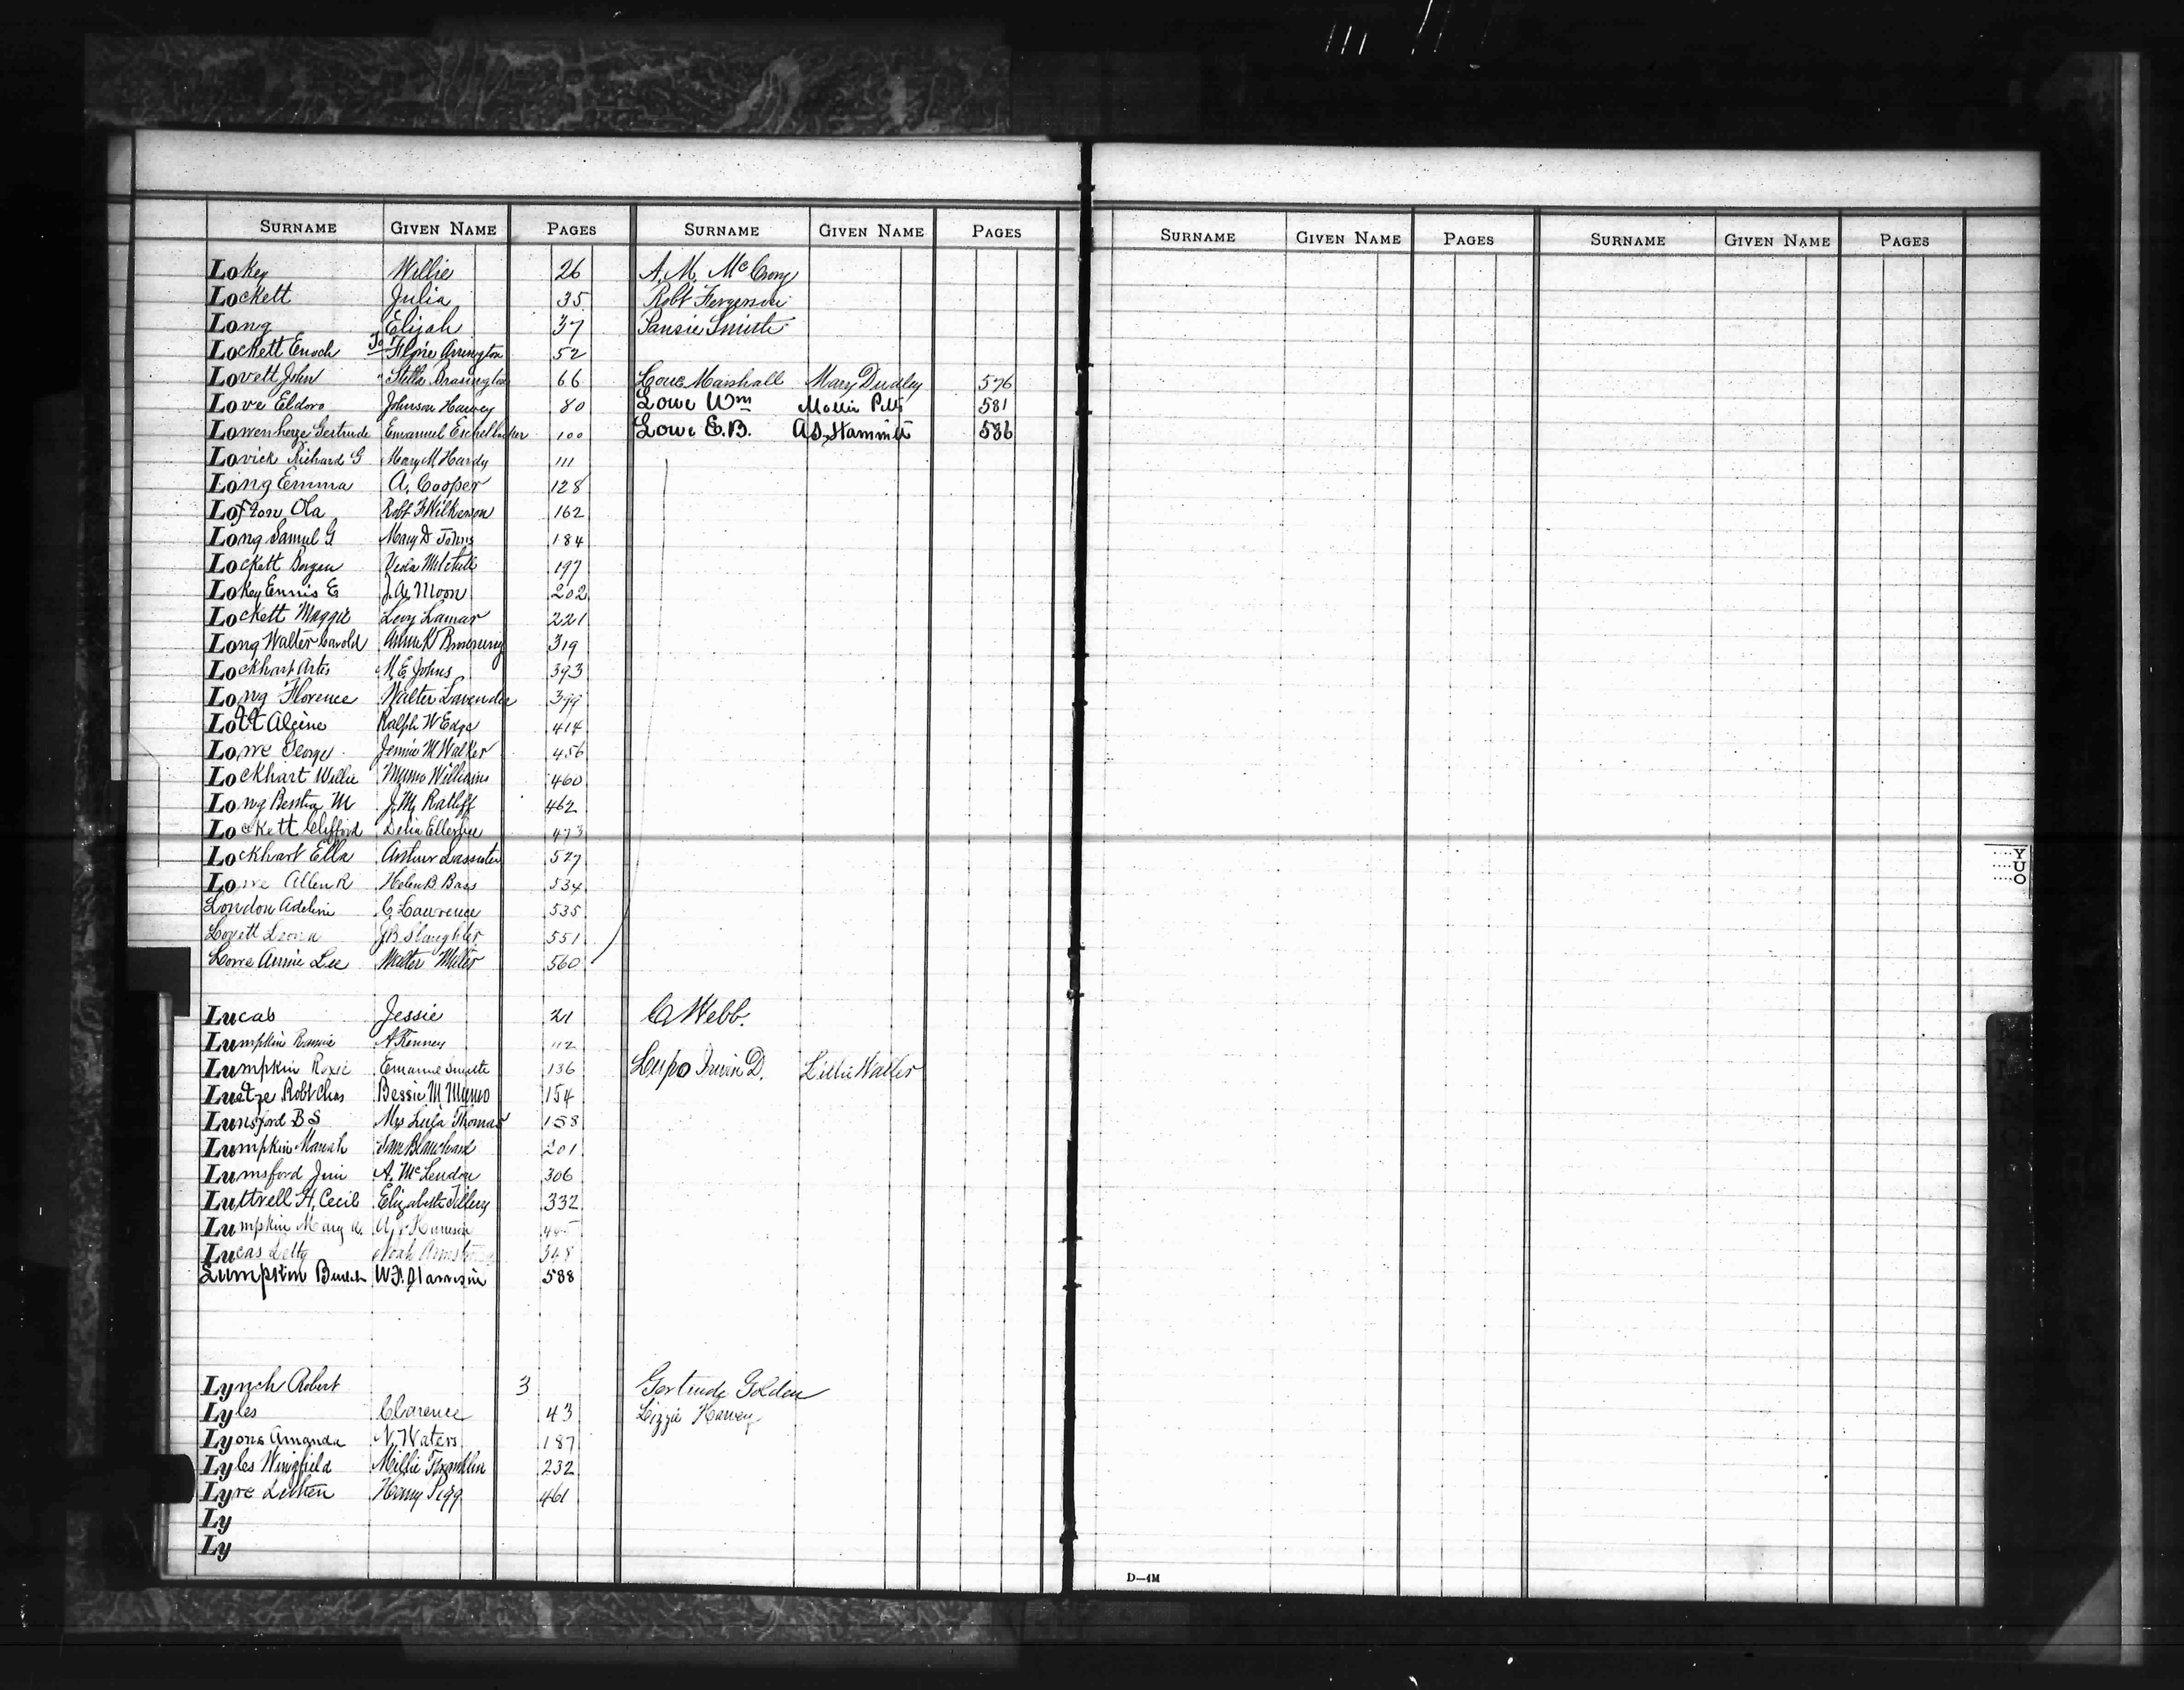 SURNAME GIVEN NAME PAGES SURNAME GIVEN NAME PAGES SURNAME GIVEN NAME PAGES SURNAME GIVEN NAME PAGES
Lokey Willie 26 A. M. McCrory
Lockett Julia 35 Robt Fergerson
Long Elijah 37 Pansie Smith
Lockett Enoch To Arrington 52
Lovett John " Stella 66 Love Marshall Mary Dudley 576
Love Eldoro Johnson Harvey 80 Lowe Wm Mollie Pitts 581
Lowenherze Gertrude Emanuel 100 Lowe E.B. 586
Lovick Richard G Mary M Hardy 111
Long Emma A. Cooper 128
Lofton Ola Robt F Wilkerson 162
Long Samuel G Mary D Johns 184
Lockett Mitchell 197
Lokey Ennis E J. A. Moon 202
Lockett Maggie Levy Lamar 221
Long Walter Carold Annie K 319
Lockhart Artis M. E. Johns 393
Long Florence Walter Lavender 399
Lott Algine Ralph W Edge 414
Lowe George Jennie M Walker 456
Lockhart Willie Williams 460
Long M J. M. Ratliff 462
Lockett Clifford Delia Ellerbee 473
Lockhart Ella Arthur Lassiter 527
Lowe Allen R Helen B Bass 534
London Adeline C Lawrence 535
Lovett Leona J B Slaughter 551
Lowe Annie Lee Walter 560
Lucas Jessie 21 C Webb.
Lumpkin A Kenney 112
Lumpkin Roxie Emanuel Smith 136 Lupo Irwin D. Lillie Waller
Luetze Robt Chas Bessie M Munro 154
Lunsford B S Mrs Lula Thomas 158
Lumpkin Sam Blanchard 201
Lumsford Jim A. McLendon 306
Luttrell H. Cecil Elizabeth Tillery 332
Lumpkin Mary
Lucas Letty Noah 348
Lumpkin W. F. Harrison 588
Lynch Robert 3 Gertrude Golden
Lyles Clarence 43 Lizzie Harvey
Lyons Amanda N. Waters 187
Lyles Wingfield Millie Franklin 232
Lyre 461
Ly
Ly
Y
U
O
D—4M